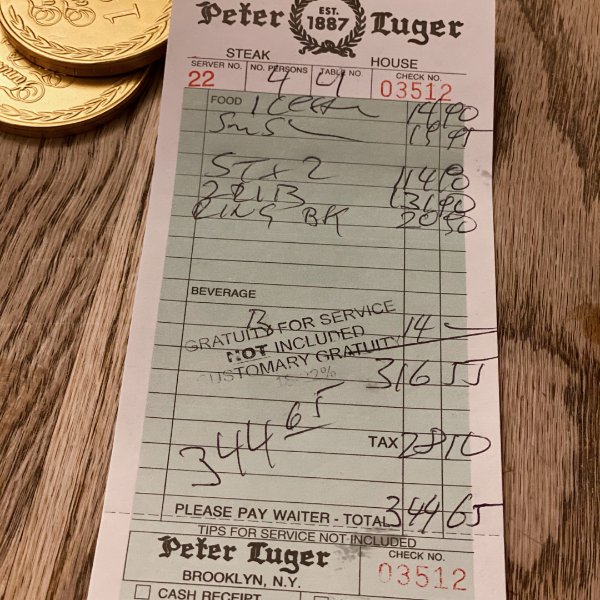 Peter Luger
EST. 1887
STEAK HOUSE
SERVER NO. NO. PERSONS TABLE NO. CHECK NO.
22 4 4 03512
FOOD 14 90
15 95
ST x 2 114 90
2 RIB 131 90
KING BK 20 50
BEVERAGE
14 –
GRATUITY FOR SERVICE
NOT INCLUDED
CUSTOMARY GRATUITY
316 55
344 65
TAX 28 10
PLEASE PAY WAITER - TOTAL 344 65
TIPS FOR SERVICE NOT INCLUDED
Peter Luger
BROOKLYN, N.Y.
CHECK NO.
03512
CASH RECEIPT